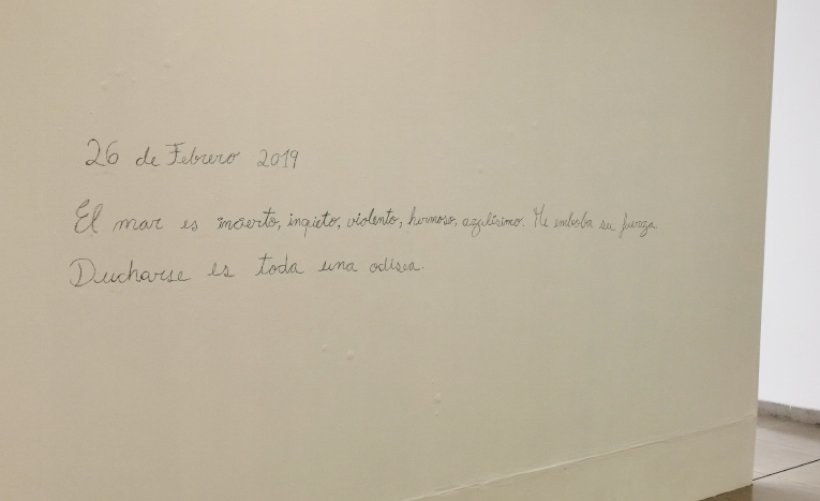 26 de Febrero 2019
El mar es incierto, inquieto, violento, hermoso, azulísimo. Me emboba su fuerza.
Ducharse es toda una odisea.